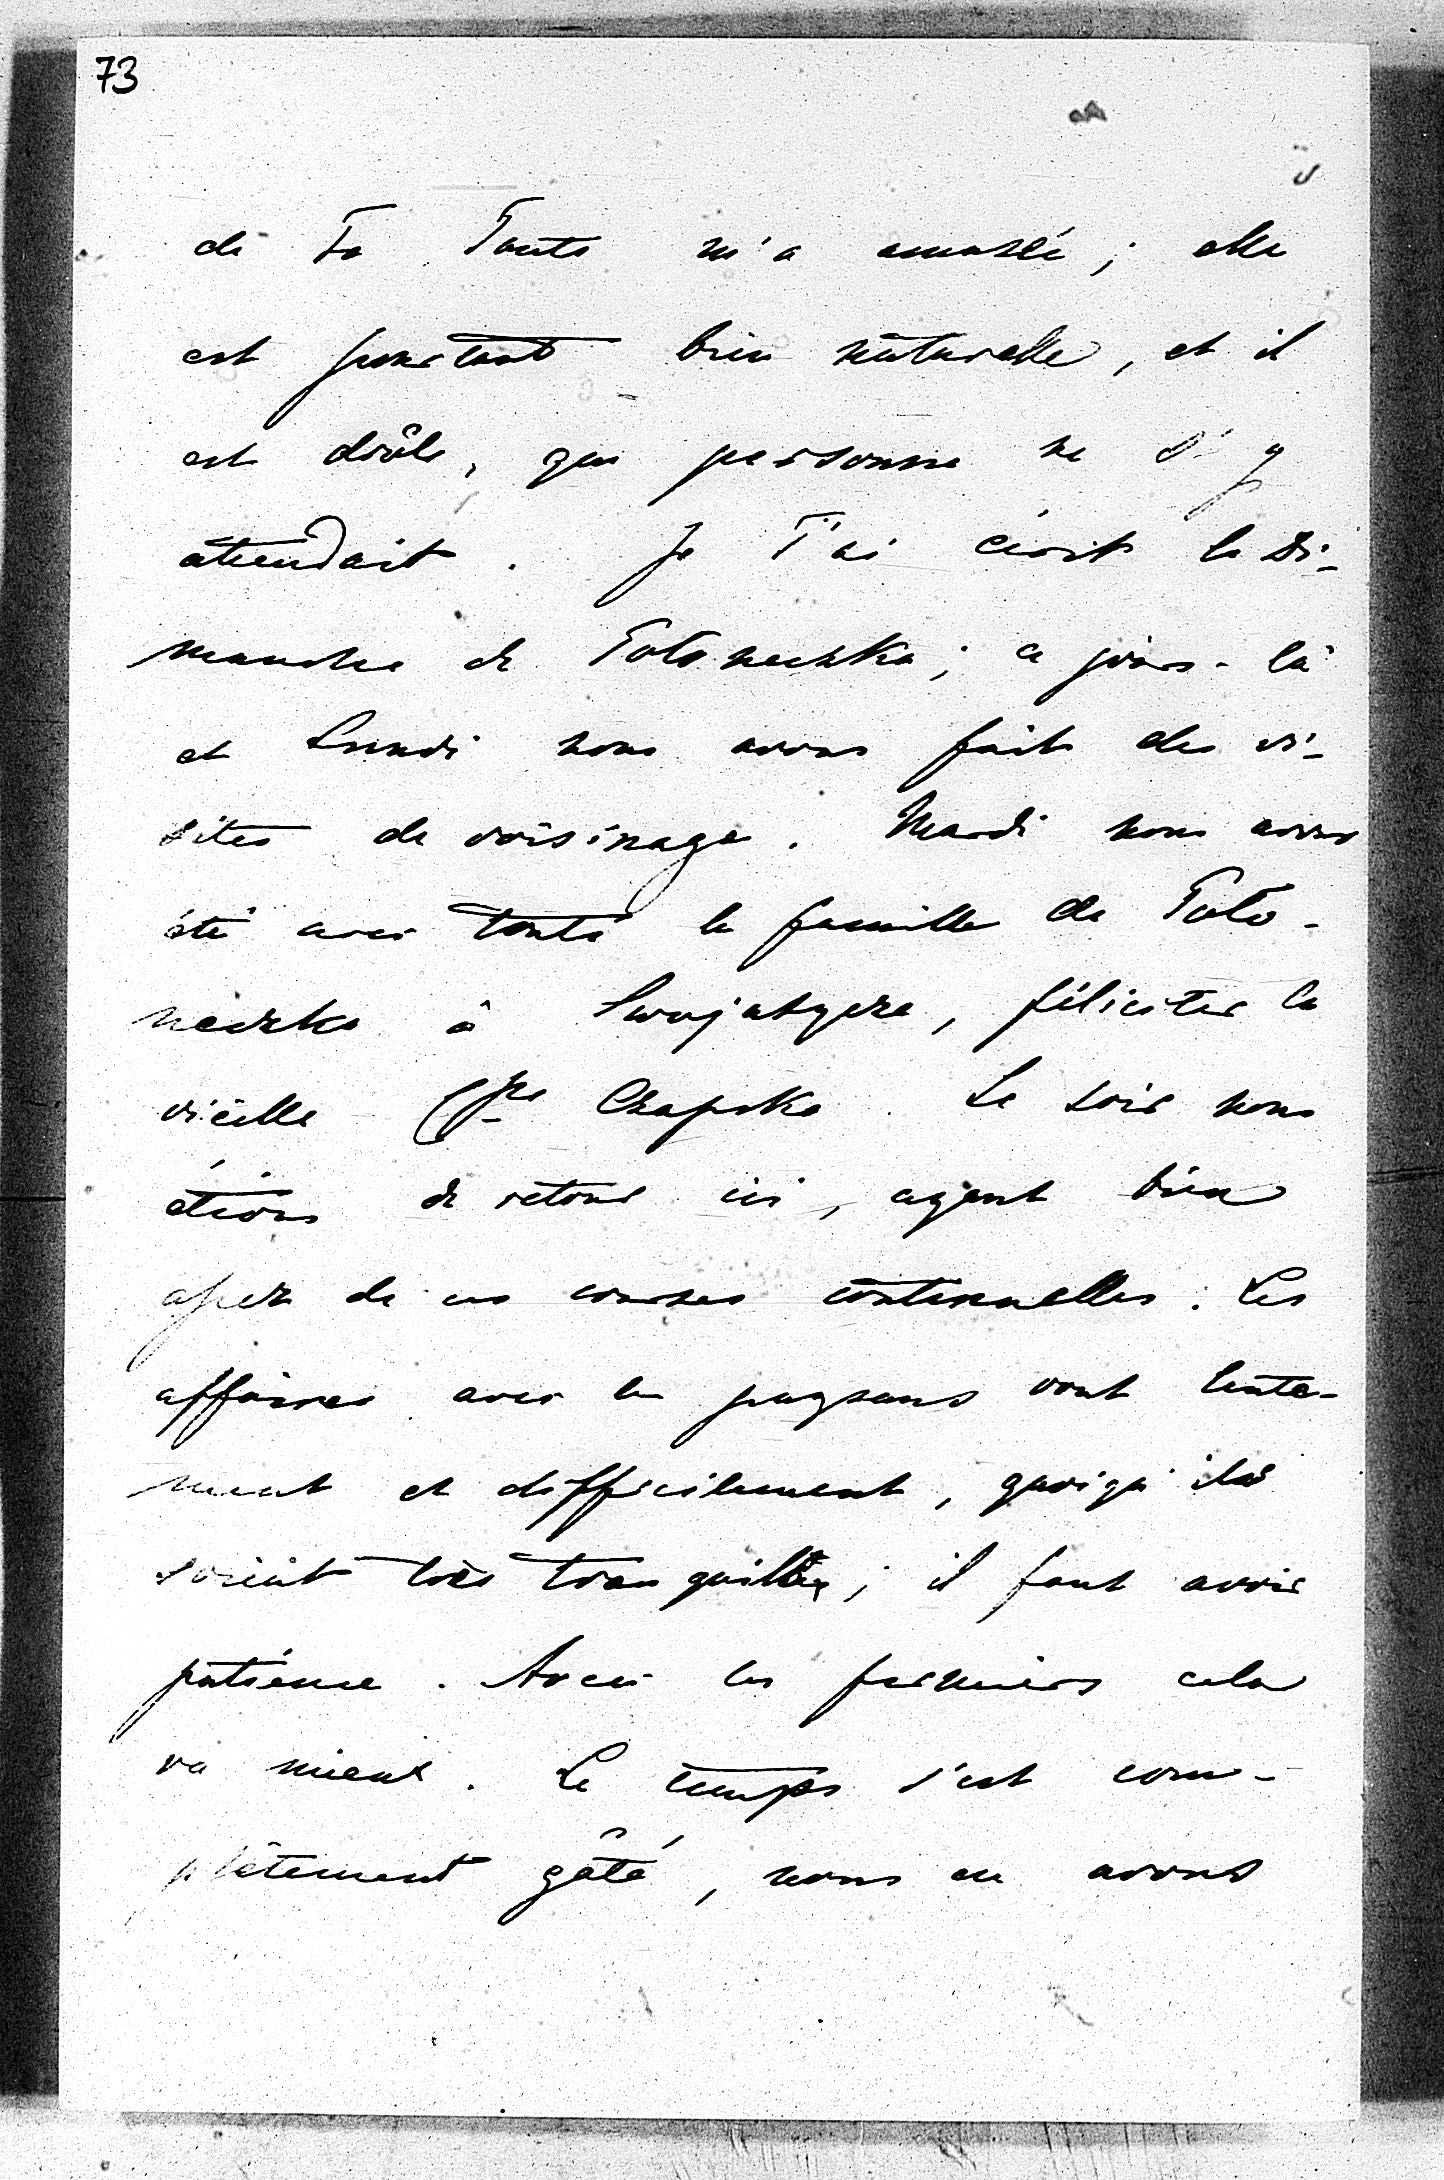 73
de Ta Tante m'a amusée ; elle
est pourtant bien naturelle, et il
est drôle, que personne ne s'y
attendait. Je T'ai écrit le Di-
manche de Totoneczka ; ce jour-là
et Lundi nous avons fait des vi-
sites de voisinage. Mardi nous avons
été avec toute la famille de Toto-
neczka à Swojatycze, féliciter la
vieille Csse Czapska. Le soir nous
étions de retour ici, ayant bien
assez de ces courses continuelles. Les
affaires avec les paysans vont lente-
ment et difficilement, quoiqu'ils
soient très tranquilles ; il faut avoir
patience. Avec les fermiers cela
va mieux. Le temps s'est com-
plètement gâté, nous en avons